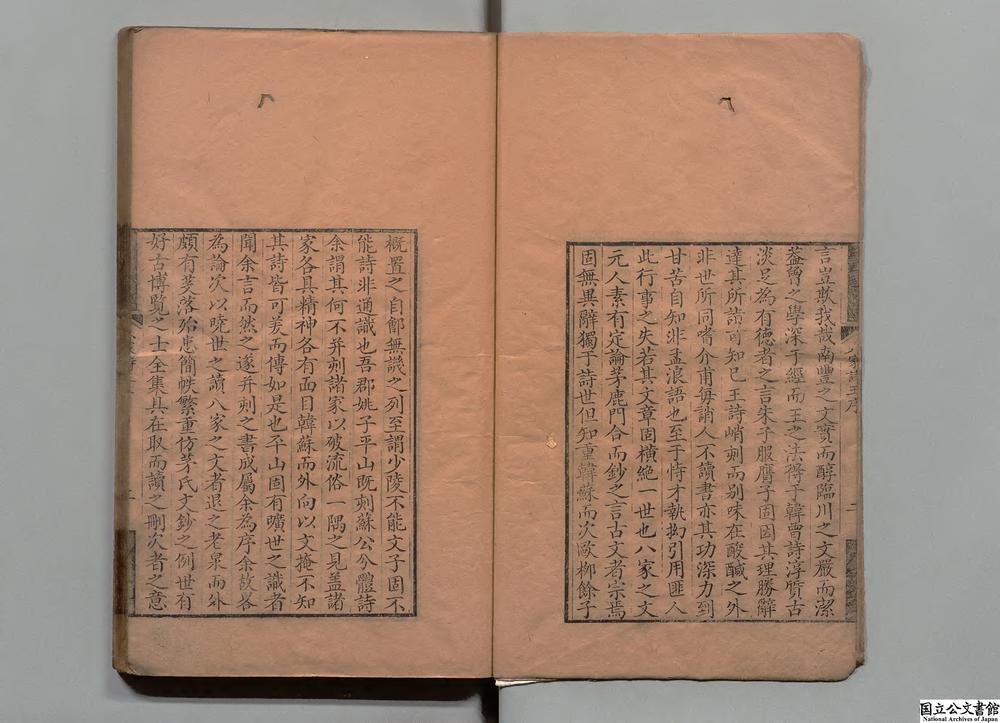 言豈欺我哉南豐之文實而醇臨川之文嚴而潔
葢曾之學深于經而王之法得于韓曾詩淳質古
淡足為有德者之言朱子服膺子固因其理勝辭
達其所詣可知已王詩峭刻而别味在酸醎之外
非世所同嗜介甫每誚人不讀書亦其功深力到
甘苦自知非孟浪語也至于恃才執拗引用匪人
此行事之失若其文章固橫絶一世也八家之文
元人素有定論茅鹿門合而鈔之言古文者宗焉
固無異辭獨于詩世但知重韓蘇而次歐柳餘子
概置之自鄶無譏之列至謂少陵不能文子固不
能詩非通識也吾郡姚子平山既刻蘇公分體詩
余謂其何不并刻諸家以破流俗一隅之見盖諸
家各具精神各有面目韓蘇而外向以文掩不知
其詩皆可爰而傳如是也平山固有曠世之識者
聞余言而然之遂并刻之書成屬余為序余故畧
為論次以曉世之讀八家之文者退之老泉而外
頗有芟落殆患簡帙繁重仿茅氏文鈔之例世有
好古博覽之士全集具在取而讀之刪次者之意
国立公文書館
National Archives of Japan